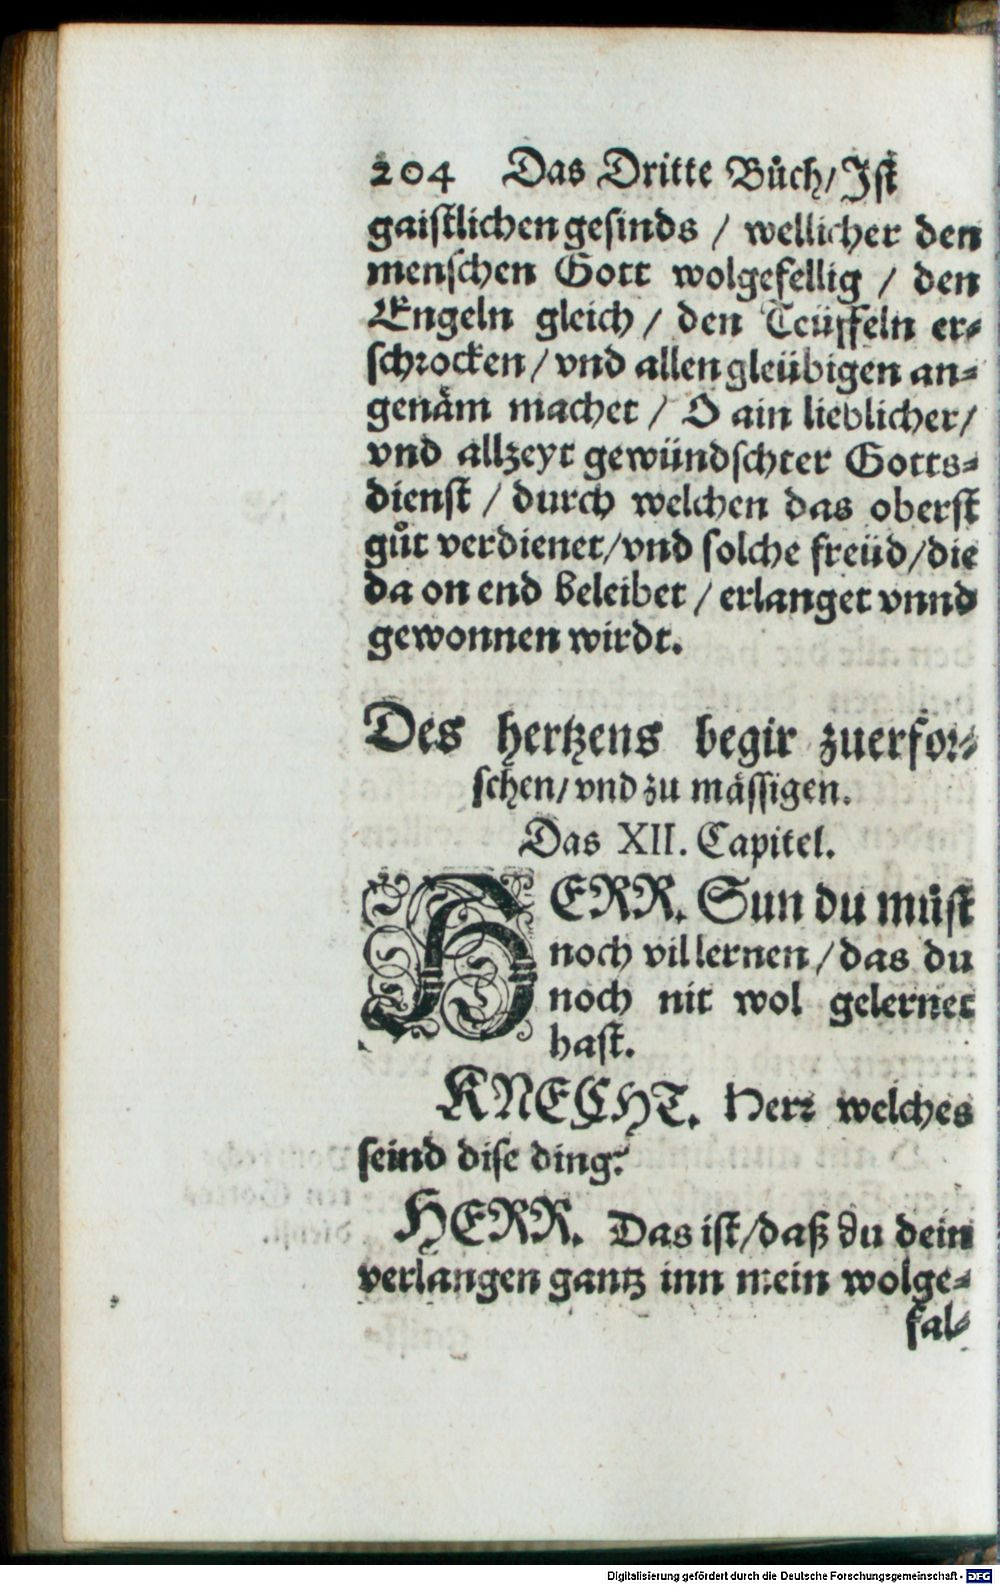 204 Das Dritte Bůch/ Ist
gaistlichen gesinds / wellicher den
menschen Gott wolgefellig / den
Engeln gleich / den Teüffeln er-
schrocken / vnd allen gleübigen an-
genäm machet / O ain lieblicher/
vnd allzeyt gewündschter Gotts-
dienst / durch welchen das oberst
gůt verdienet/vnd solche freüd/die
da on end beleibet / erlanget vnnd
gewonnen wirdt.
Des hertzens begir zuerfor-
schen/ vnd zu mässigen.
Das XII. Capitel.
HERR. Sun du můst
noch vil lernen / das du
noch nit wol gelernet
hast.
KNECHT. Herr welches
seind dise ding?
HERR. Das ist/daß du dein
verlangen gantz inn mein wolge-
fal-
Digitalisierung gefördert durch die Deutsche Forschungsgemeinschaft - DFG